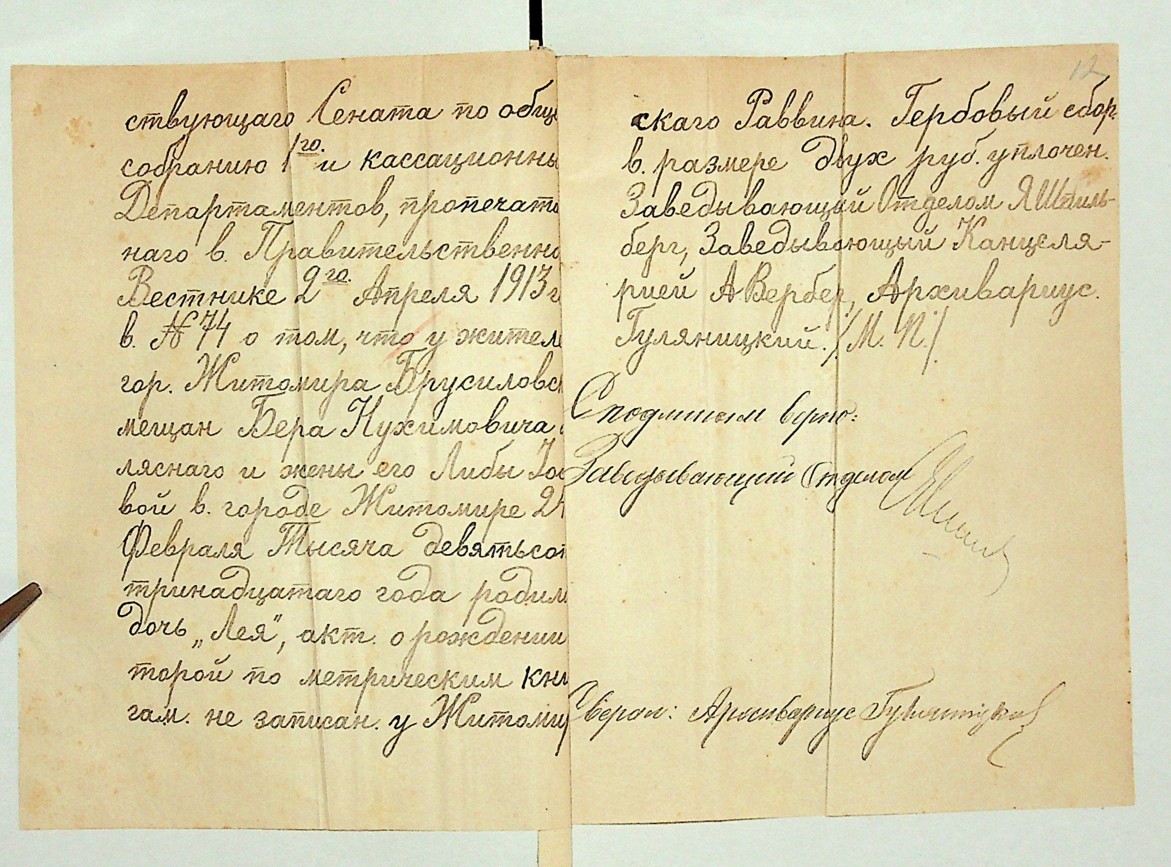 ствующаго Сената по общ
собранию 1го и кассационны
Департаментов, пропечата
наго в. Правительственно
Вестнике 2го Апреля 1913 г
в. № 74 о том, что у жителе
гор. Житомира Брусиловск
мещан Бера Нухимовича
ляснаго и жены его Либы Іос
вой в. городе Житомире 24
Февраля Тысяча девятьсот
тринадцатаго года родил
дочь „Лея", акт. о рождении
торой по метрическим кни
гам. не записан. у Житомир
12
скаго Раввина. Гербовый сбор.
в. размере двух руб. уплочен.
Заведывающий Отделом Я Шпиль-
берг, Заведывающий Канцеля-
рией А Вербер, Архивариус.
Гуляницкий. /М. П./
С подлинным верно:
Заведывающий Отделом
Сверял: Архивариус Гуляницкий